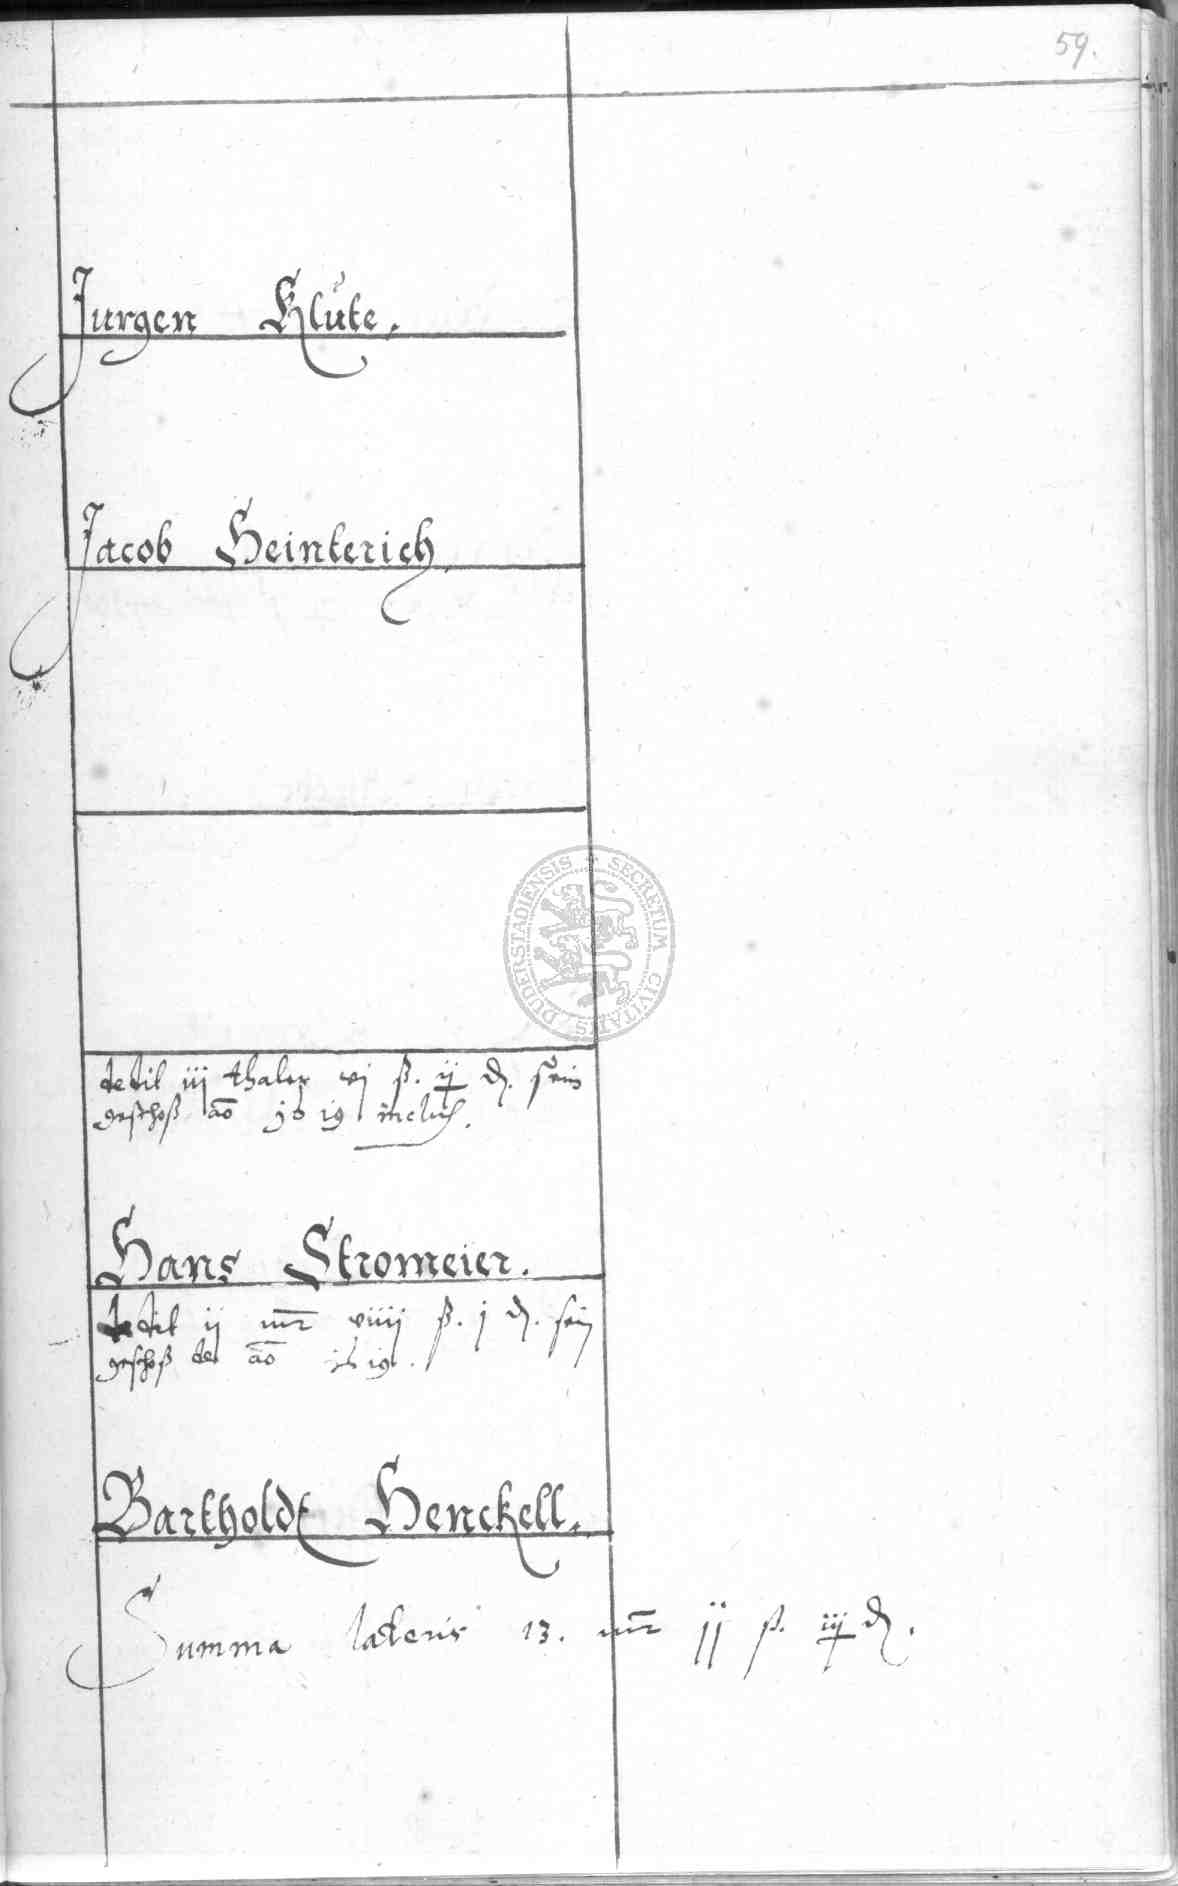 59.
Jurgen Klŭte.
Jacob Heinterich.
SECRETUM CIVITATIS DUDERSTADIENSIS
dedit iij thaler vj ß. ij ₰. sein
geschoß ao 1619 inclus.
Hans Stromeier.
dedit ij mr viiij ß. j ₰. sein
geschoß de ao 1619.
Bartholdt Henckell.
Summa lateris 13. mr ij ß. iij ₰.